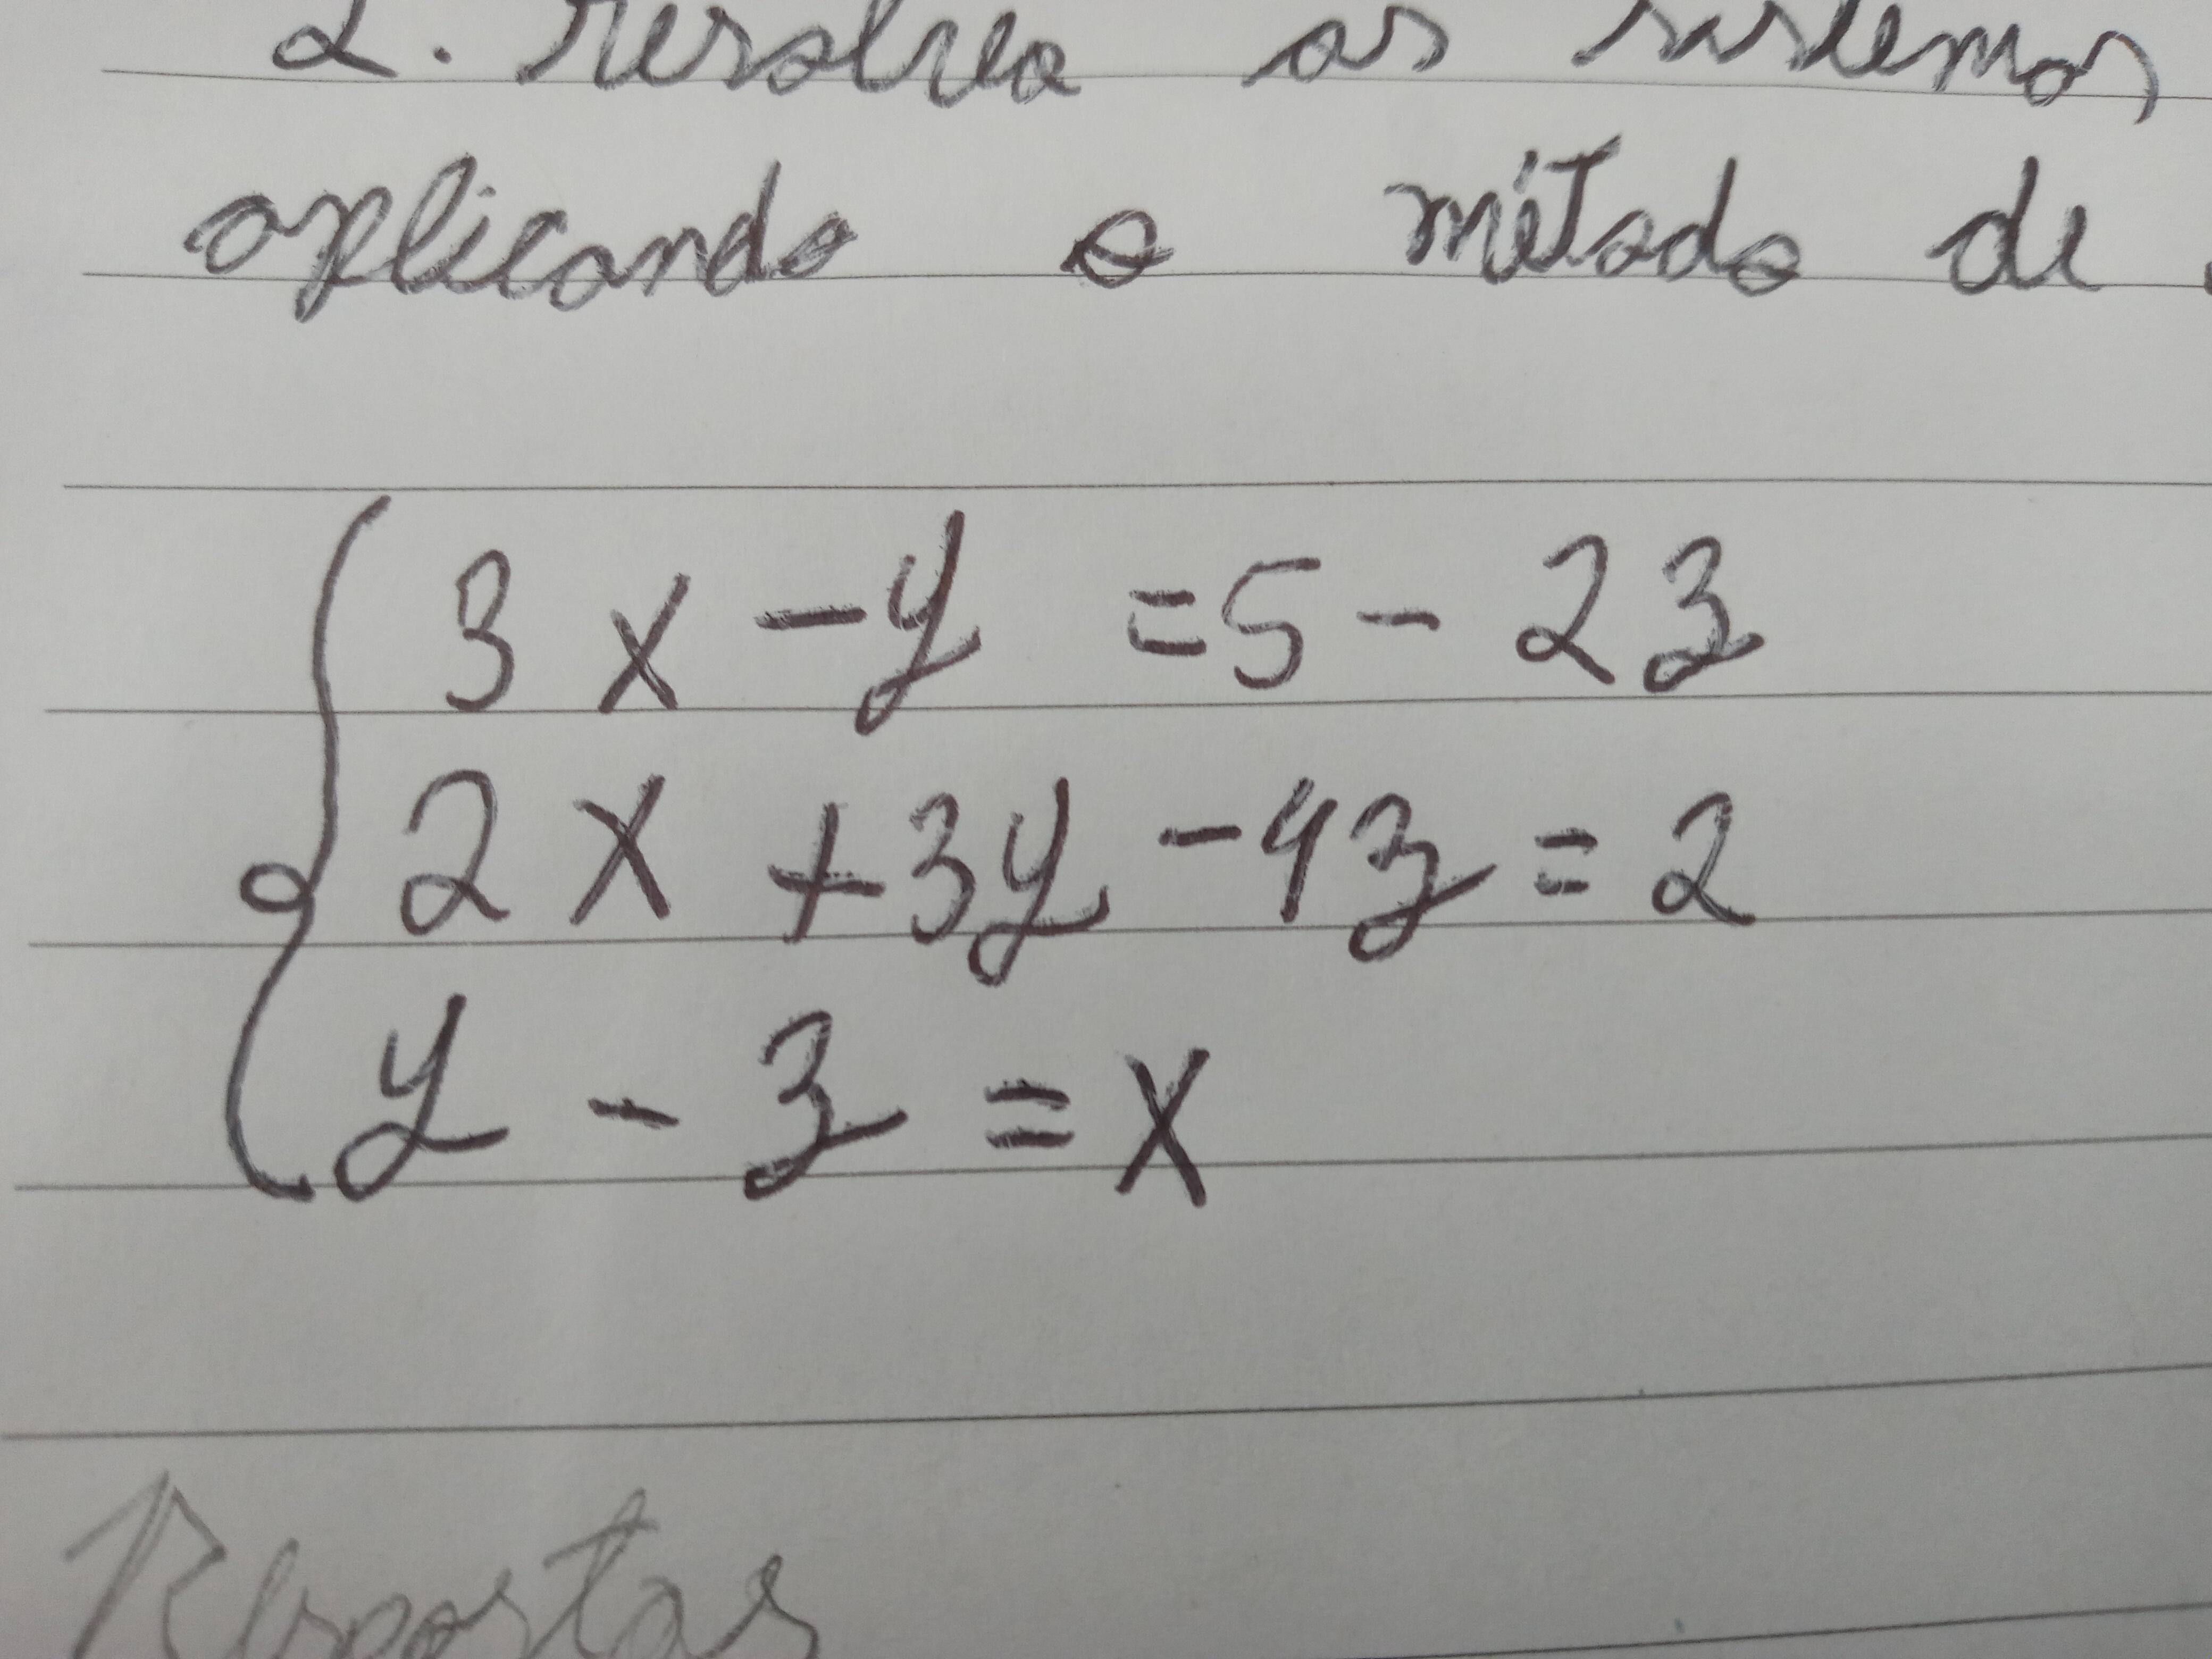 2. resolva os sistemas
aplicando o método de
3x - y = 5 - 2z
2x + 3y - 4z = 2
y - z = x
Respostas